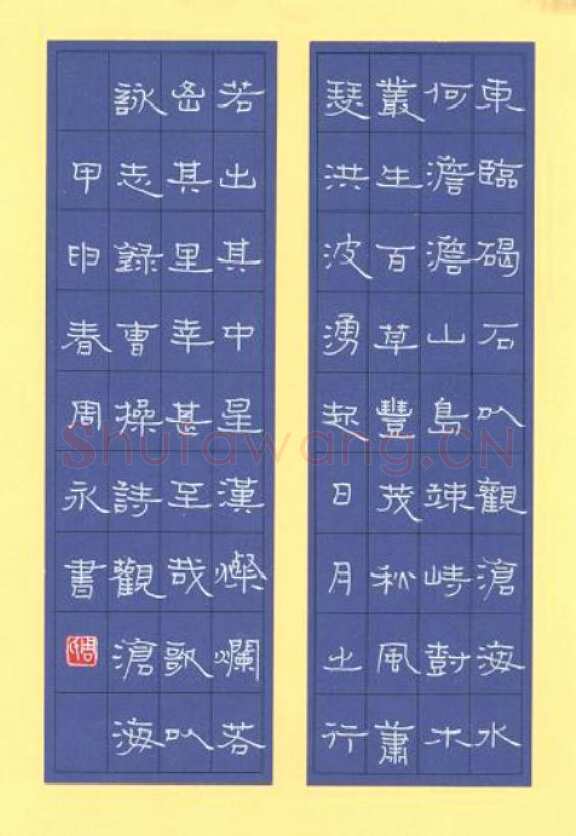 東臨碣石以觀滄海水
何澹澹山島竦峙樹木
叢生百草豐茂秋風蕭
瑟洪波湧起日月之行
若出其中星漢燦爛若
出其里幸甚至哉歌以
詠志錄曹操詩觀滄海
甲申春周永書
Shufawang.CN